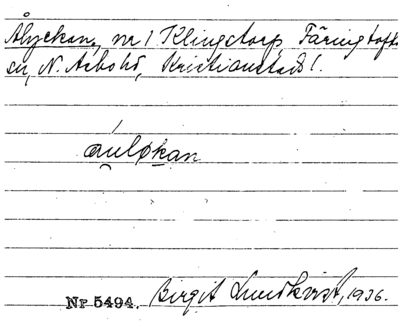 Ålyckan, nr 1 Klingstorp, Färingtofta
sn, N. Åsbo hd, Kristianstads l.
áuløkan
Nr 5494. Birgit Lundkvist, 1936.